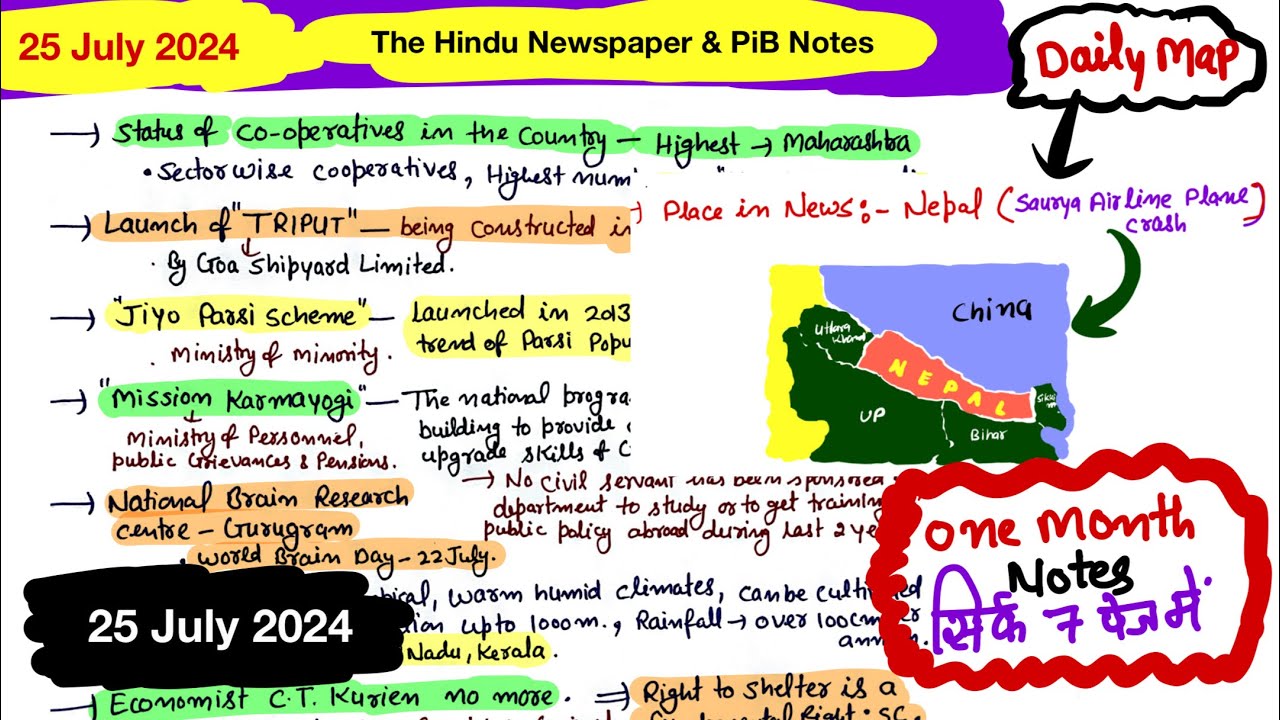 25 July 2024
The Hindu Newspaper & PiB Notes
Daily Map
→ Status of co-operatives in the Country — Highest → Maharashtra
• Sectorwise cooperatives, Highest
→ Launch of "TRIPUT" — being constructed in
• By Goa Shipyard Limited.
→ "Jiyo Parsi Scheme" — Launched in 2013
trend of Parsi
• Ministry of minority.
→ "Mission Karmayogi" — The national
building to provide
upgrade skills of
Ministry of Personnel,
public Grievances & Pensions.
→ No civil servant has been sponsored
department to study or to get training
public policy abroad during last 2
→ National Brain Research
centre – Gurugram
• World Brain Day – 22 July.
warm humid climates, can be
upto 1000m., Rainfall → over 100cm
Nadu, Kerala.
25 July 2024
→ Economist C.T. Kurien no more.
⇒ Right to shelter is a
Right • SC
Place in News:- Nepal (Saurya Airline Plane
crash)
China
Uttara
Khand
NEPAL
Sikkim
UP
Bihar
One Month
Notes
सिर्फ 7 पेज में